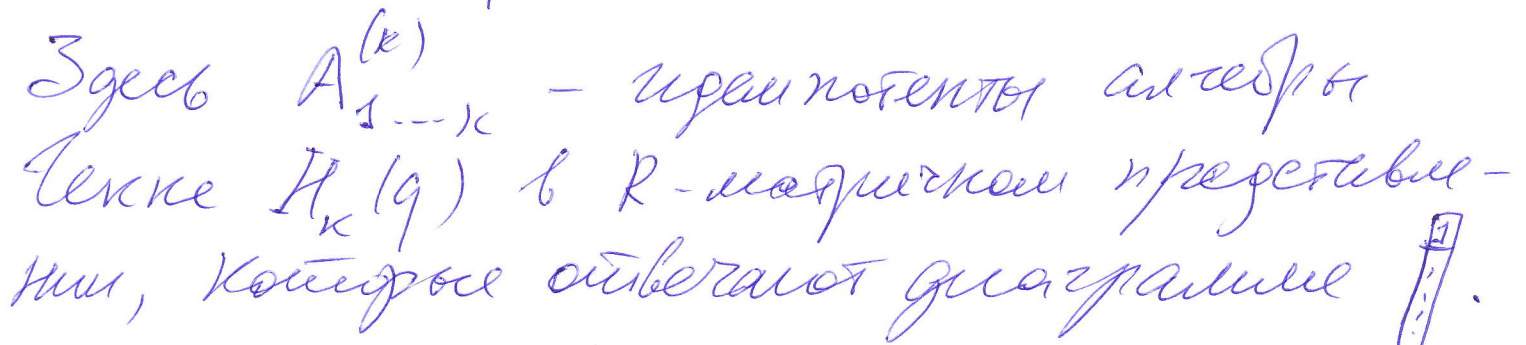 Здесь A^{(k)}_{1...k} – идемпотенты алгебры
Гекке H_k(q) в R-матричном представле-
нии, которые отвечают диаграмме 1.